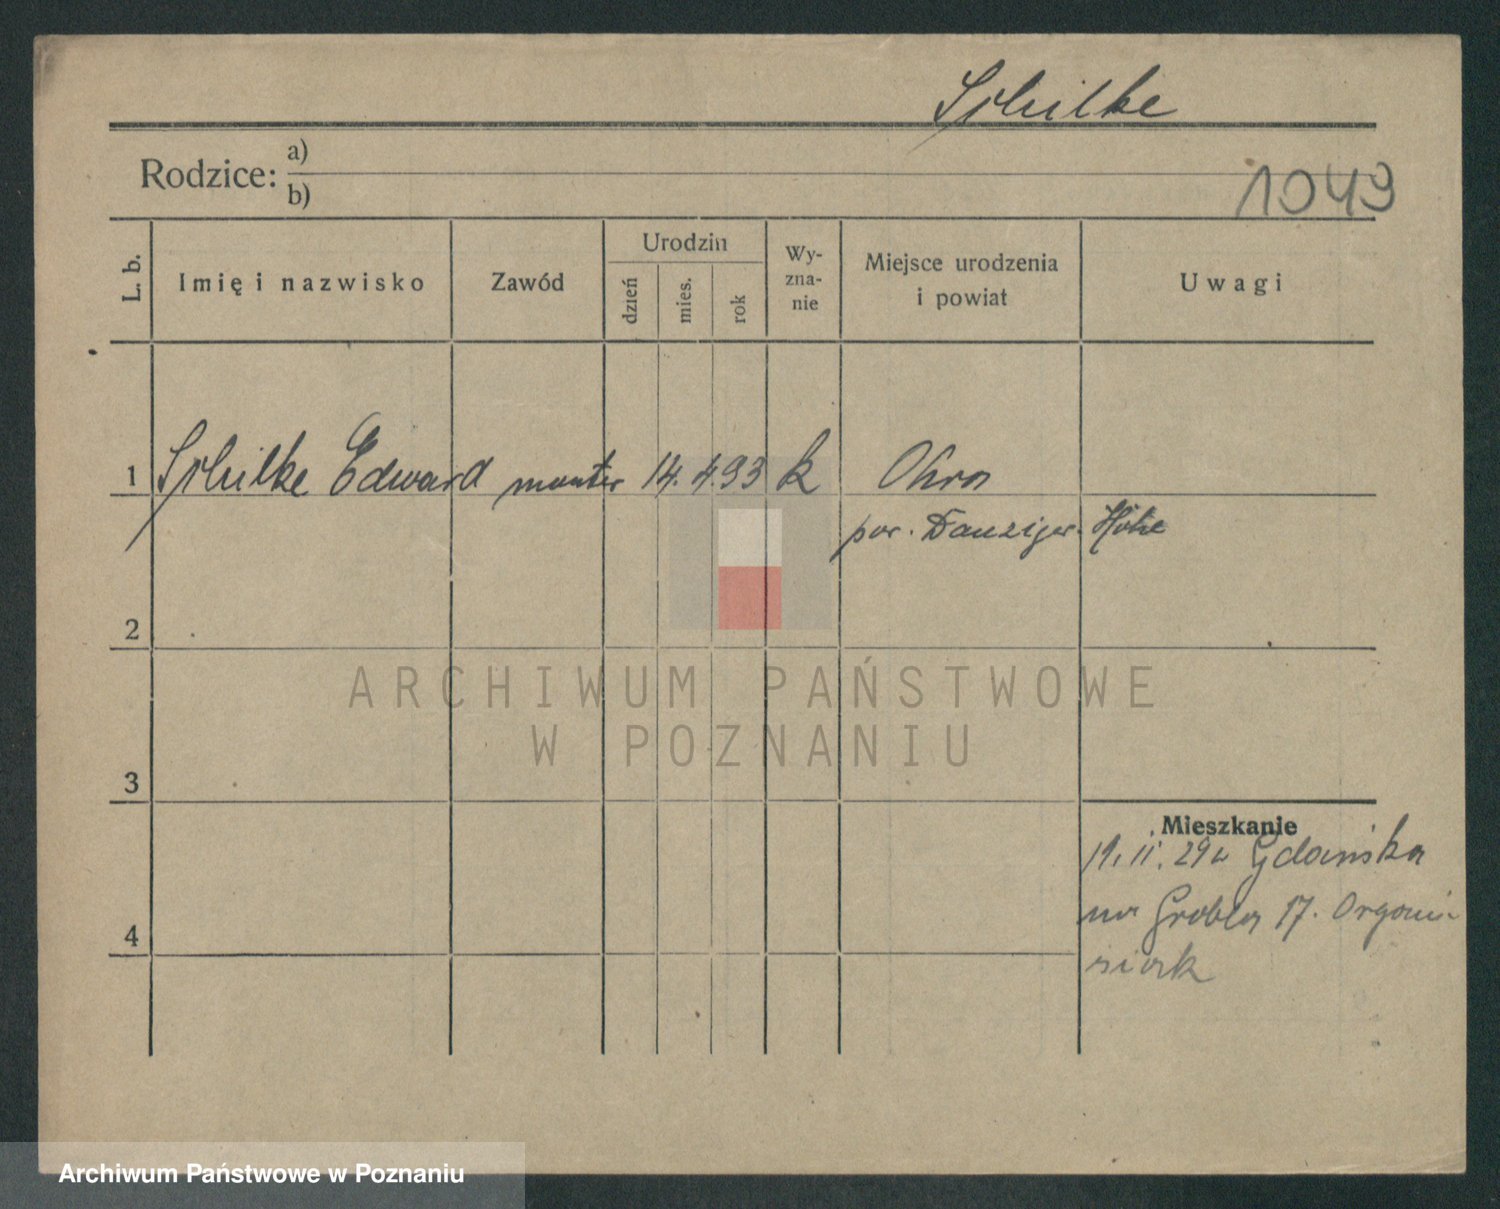 Schilke
Rodzice: a)
b)
1049
L. b.
Imię i nazwisko
Zawód
Urodzin
dzień
mies.
rok
Wy-
zna-
nie
Miejsce urodzenia
i powiat
Uwagi
1 Schilke Edward monter 14. 4 93 k Ohra
pow. Danziger-Höhe
2
3
4
Mieszkanie
19. II. 29 z Gdańska
na Grobla 17.
ARCHIWUM PAŃSTWOWE
W POZNANIU
Archiwum Państwowe w Poznaniu